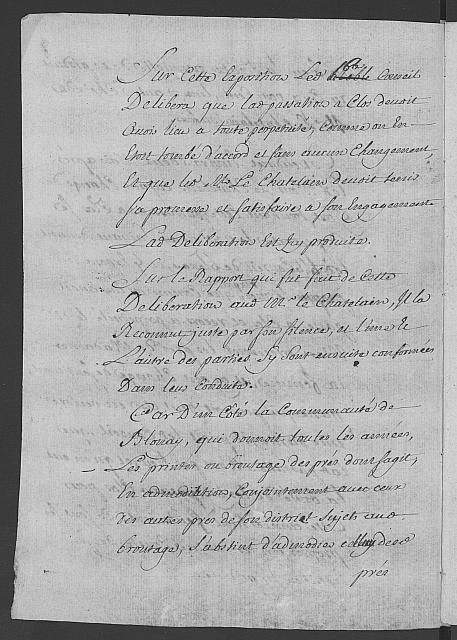 Sur Cette Exposition Led. Noble Conseil
Delibera que lad. passation à Clos devoit
avoir lieu a toute perpetuité, comme on En
Etoit tombé d'accord et sans aucun Changement,
Et que led. Mr. Le Chatelain devoit tenir
sa promesse et satisfaire a son Engagement
Lad. Deliberation Est Icy produite.
Sur le Rapport qui fut fait de Cette
Deliberation aud. Mr. le Chatelain, Il la
Reconnut juste par son silence, et l'une et
L'autre des parties s'y sont ensuite conformées
Dans leur conduite.
Car D'un Côté la Communauté de
Blonay, qui donnoit toutes les années,
Les printems ou broutage des prés dont s'agit,
En admodiation, Conjointement avec ceux
des autres prés de son district sujets aud.
broutage, s'abstint d'admodier celluy desd.
prés